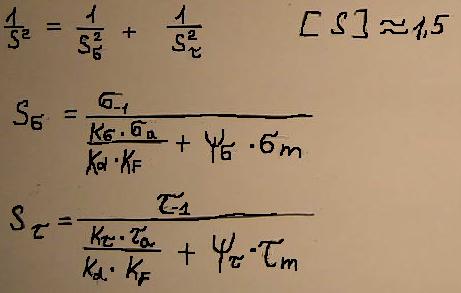 1/S² = 1/S²σ + 1/S²τ [S]≈1,5
Sσ = σ-1 / (Kσ·σa / Kd·KF + ψσ·σm)
Sτ = τ-1 / (Kτ·τa / Kd·KF + ψτ·τm)